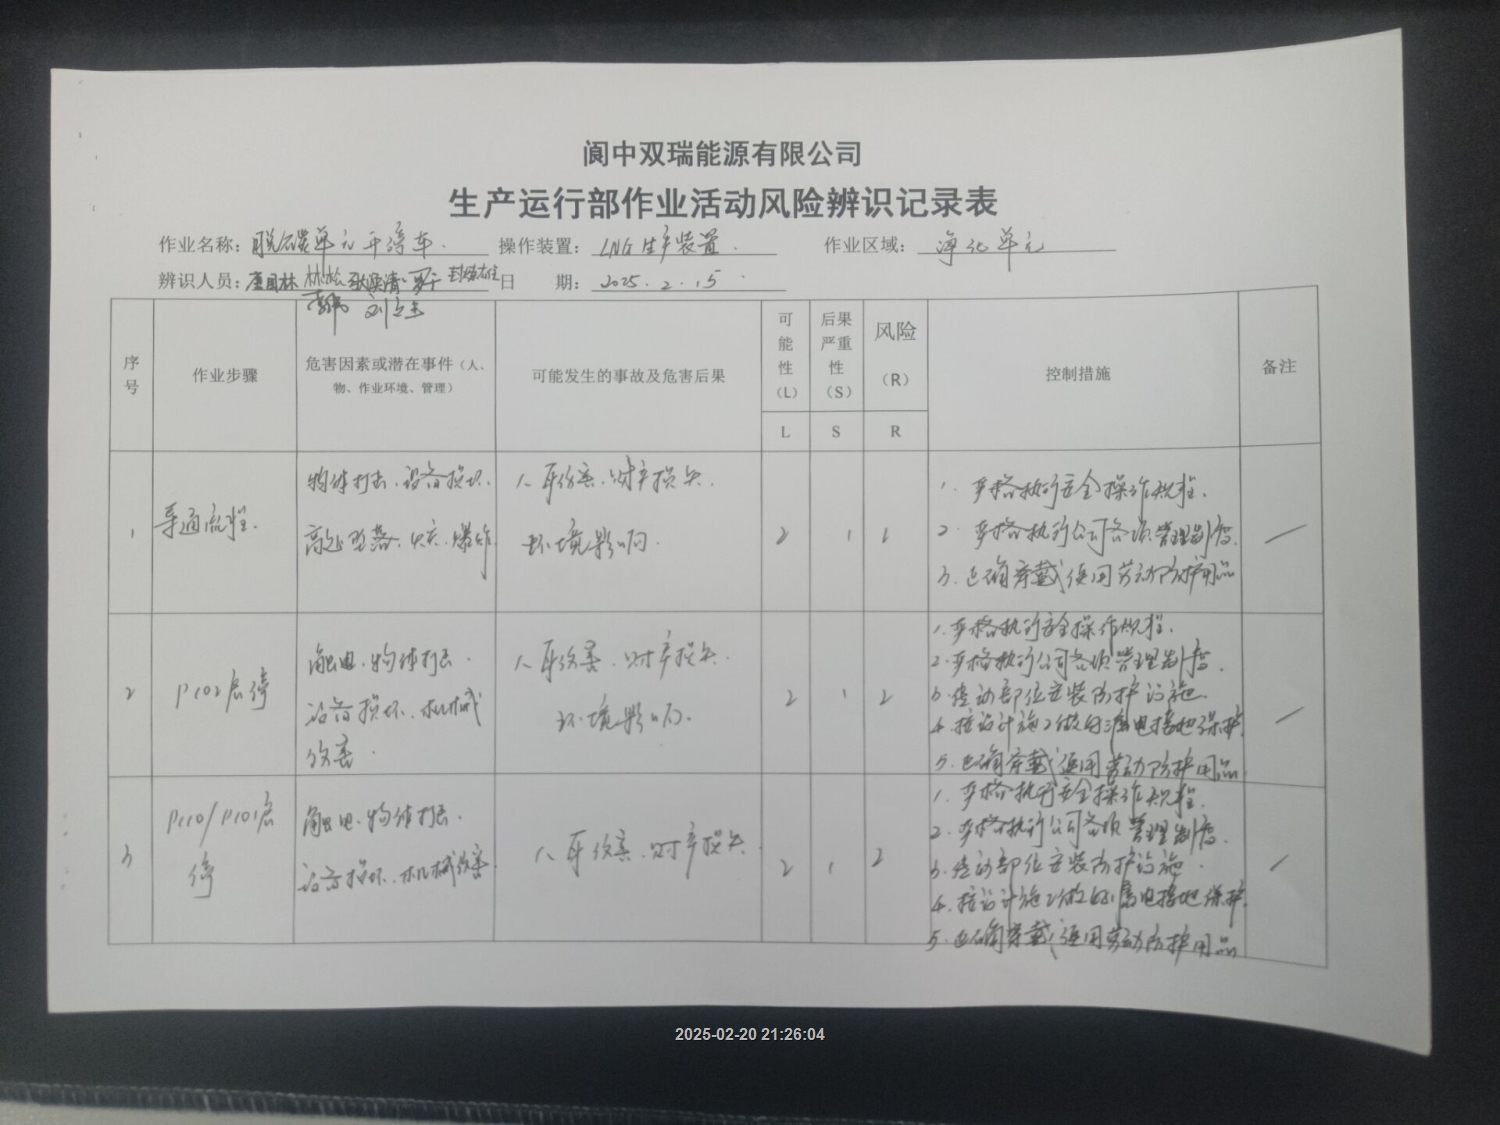 阆中双瑞能源有限公司
生产运行部作业活动风险辨识记录表
作业名称：脱碳单元开停车. 操作装置：LNG生产装置. 作业区域：净化单元
辨识人员： 林松 日 期：2025.2.15
序号 作业步骤 危害因素或潜在事件（人、物、作业环境、管理） 可能发生的事故及危害后果 可能性（L） 后果严重性（S） 风险（R） 控制措施 备注
L S R
1 导通流程.
物体打击、设备损坏、
高处坠落、火灾、爆炸
人身伤害、财产损失.
环境影响.
2 1
1. 严格执行安全操作规程.
2. 严格执行公司各项管理制度.
3. 正确穿戴使用劳动防护用品
2 P102启停
触电、物体打击、
设备损坏、机械
伤害.
人身伤害、财产损失.
环境影响.
2 1 2
1. 严格执行安全操作规程.
2. 严格执行公司各项管理制度.
3. 转动部位安装防护设施.
4. 按设计施工做好漏电接地保护.
5. 正确穿戴使用劳动防护用品
3 P110/P101启
停
触电、物体打击、
设备损坏、机械伤害
人身伤害、财产损失.
2 1 2
1. 严格执行安全操作规程.
2. 严格执行公司各项管理制度.
3. 转动部位安装防护设施.
4. 按设计施工做好漏电接地保护.
5. 正确穿戴使用劳动防护用品
2025-02-20 21:26:04